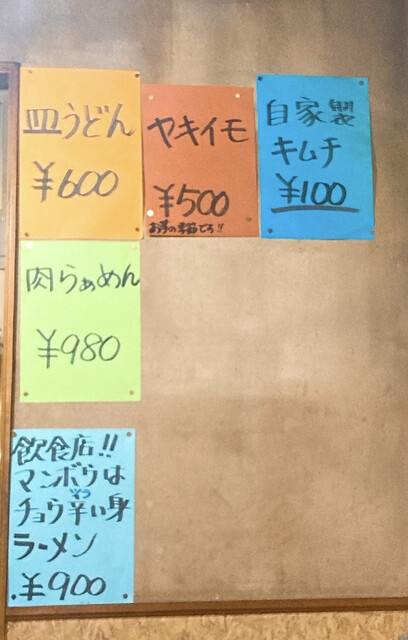 皿うどん
¥600
ヤキイモ
¥500
お芋の季節でろ!!
自家製
キムチ
¥100
肉らぁめん
¥980
飲食店!!
マンボウは
チョウ辛い身
ラーメン
¥900